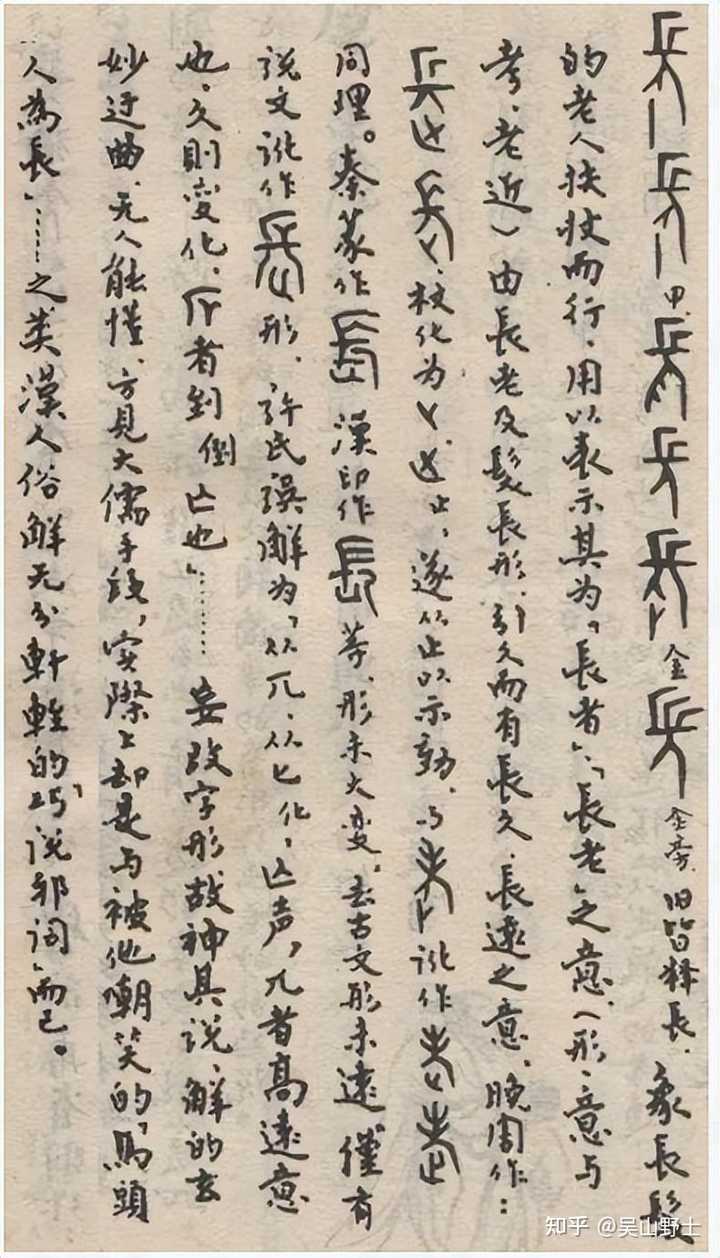 甲 金 金旁 旧皆释长、象長髪
的老人扶杖而行、用以表示其为「長者」、「長老」之意、(形、意与
考、老近)由長老及髮長形、引久而有長久、長遠之意、晚周作：
杖化为 止、遂从止以示動、与 讹作
同理。秦篆作 漢印作 等、形未大变、去古文形未遠。僅有
说文讹作 形、許氏误解为「从兀、从匕化、亾声，兀者高遠意
也、久则变化、 者到倒亾也」…… 妄改字形故神其说、解的玄
妙迂曲、无人能懂、方見大儒手段，实際上却是与被他嘲笑的「馬頭
人為長」……之类漢人俗解无分軒輊的「巧说邪词」而已。
知乎 @吴山野士